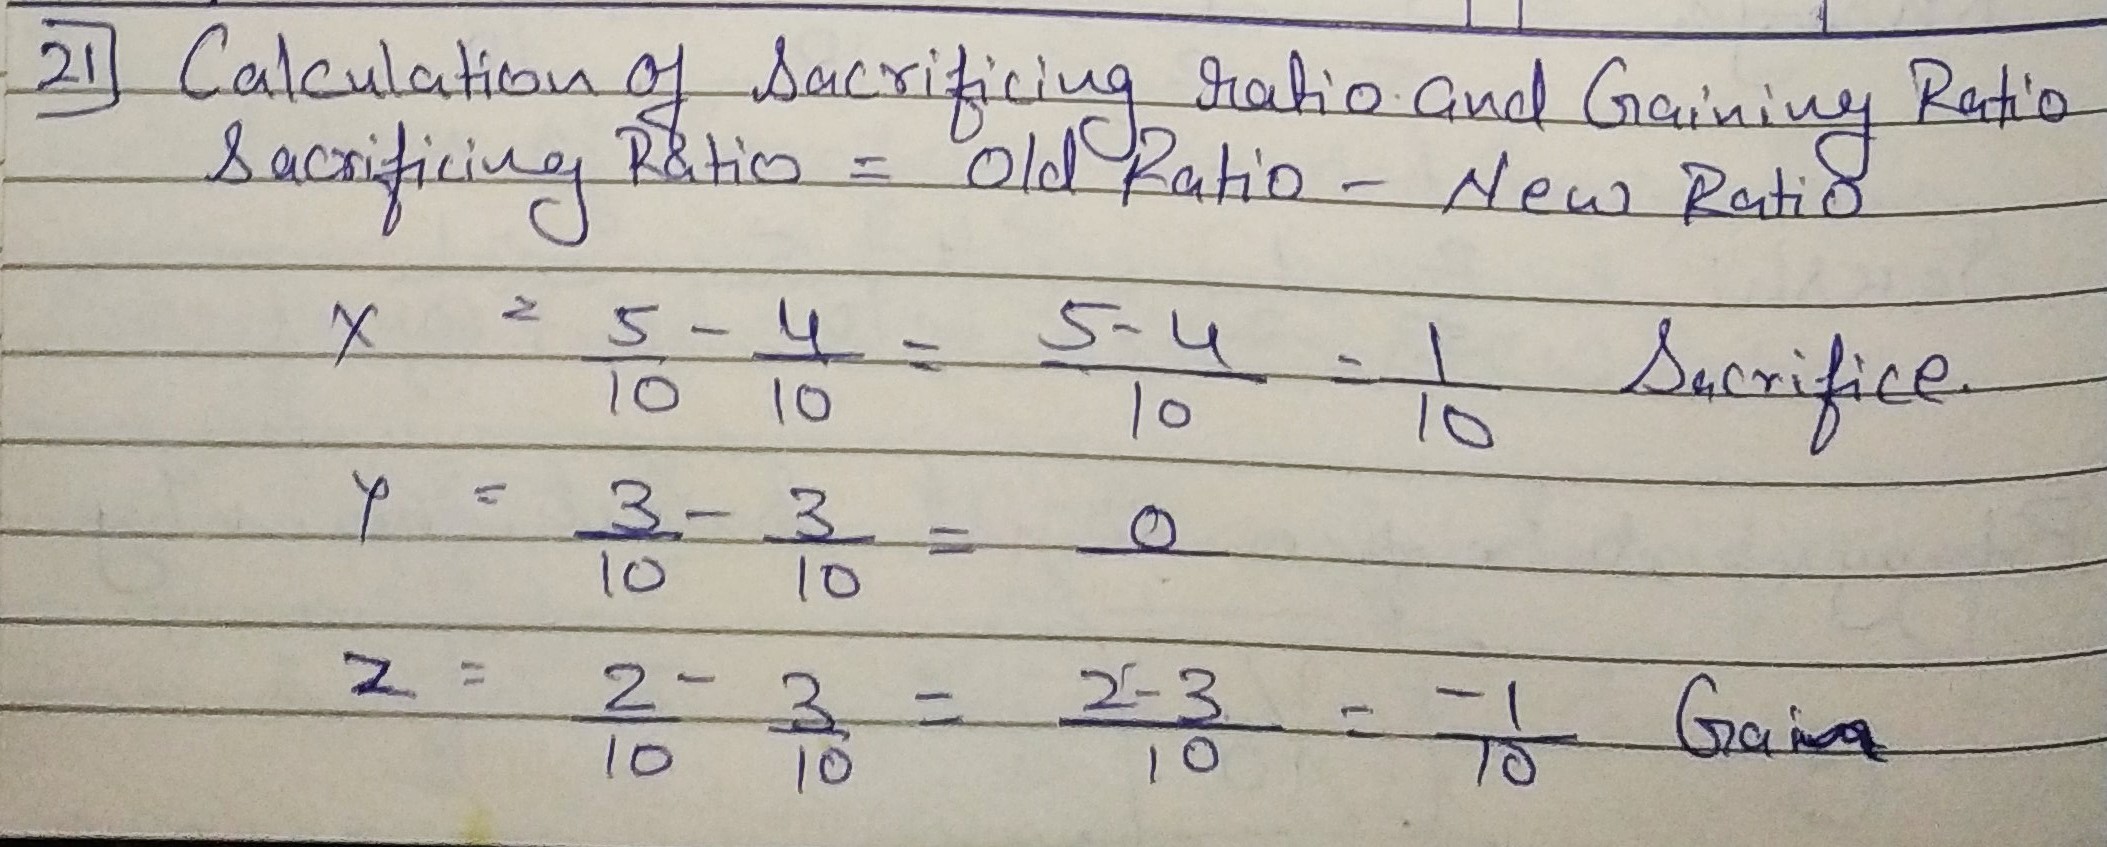 21 Calculation of Sacrificing ratio and Gaining Ratio
Sacrificing Ratio = Old Ratio - New Ratio
X = 5/10 - 4/10 = 5-4/10 = 1/10 Sacrifice.
Y = 3/10 - 3/10 = 0
Z = 2/10 - 3/10 = 2-3/10 = -1/10 Gain